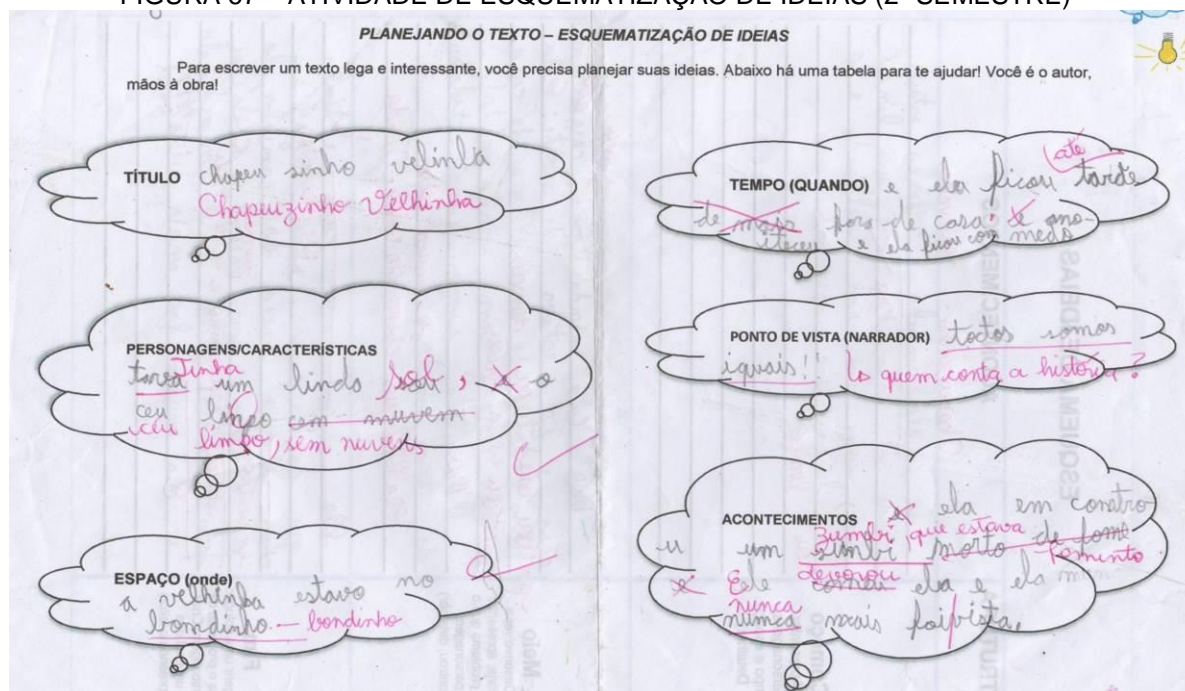 FIGURA 67 – ATIVIDADE DE ESQUEMATIZAÇÃO DE IDEIAS (2º SEMESTRE)
PLANEJANDO O TEXTO – ESQUEMATIZAÇÃO DE IDEIAS
Para escrever um texto lega e interessante, você precisa planejar suas ideias. Abaixo há uma tabela para te ajudar! Você é o autor,
mãos à obra!
TÍTULO chapeu sinho velinla
Chapeuzinho Velhinha
PERSONAGENS/CARACTERÍSTICAS
Tinha
um lindo sol, e o
ceu limpo sem muvem
céu limpo, sem nuvens
ESPAÇO (onde)
a velhinha estavo no
bomdinho – bondinho
até
TEMPO (QUANDO) e ela ficou tarde
de mais fora de casa. e ano-
iteceu e ela ficou com medo
PONTO DE VISTA (NARRADOR) todos somos
iguais!! quem conta a história?
ACONTECIMENTOS e ela em contro
zumbi, que estava
u um zumbi morto de fome
faminto
devorou
e Ele comeu ela e ela
nunca
numca mais foi vista.